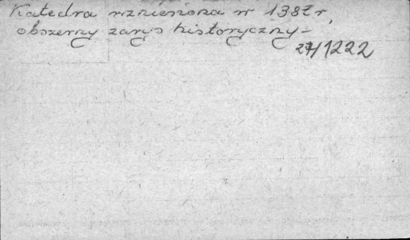 Katedra wzniesiona w 1382 r,
obszerny zarys historyczny -
24/1222